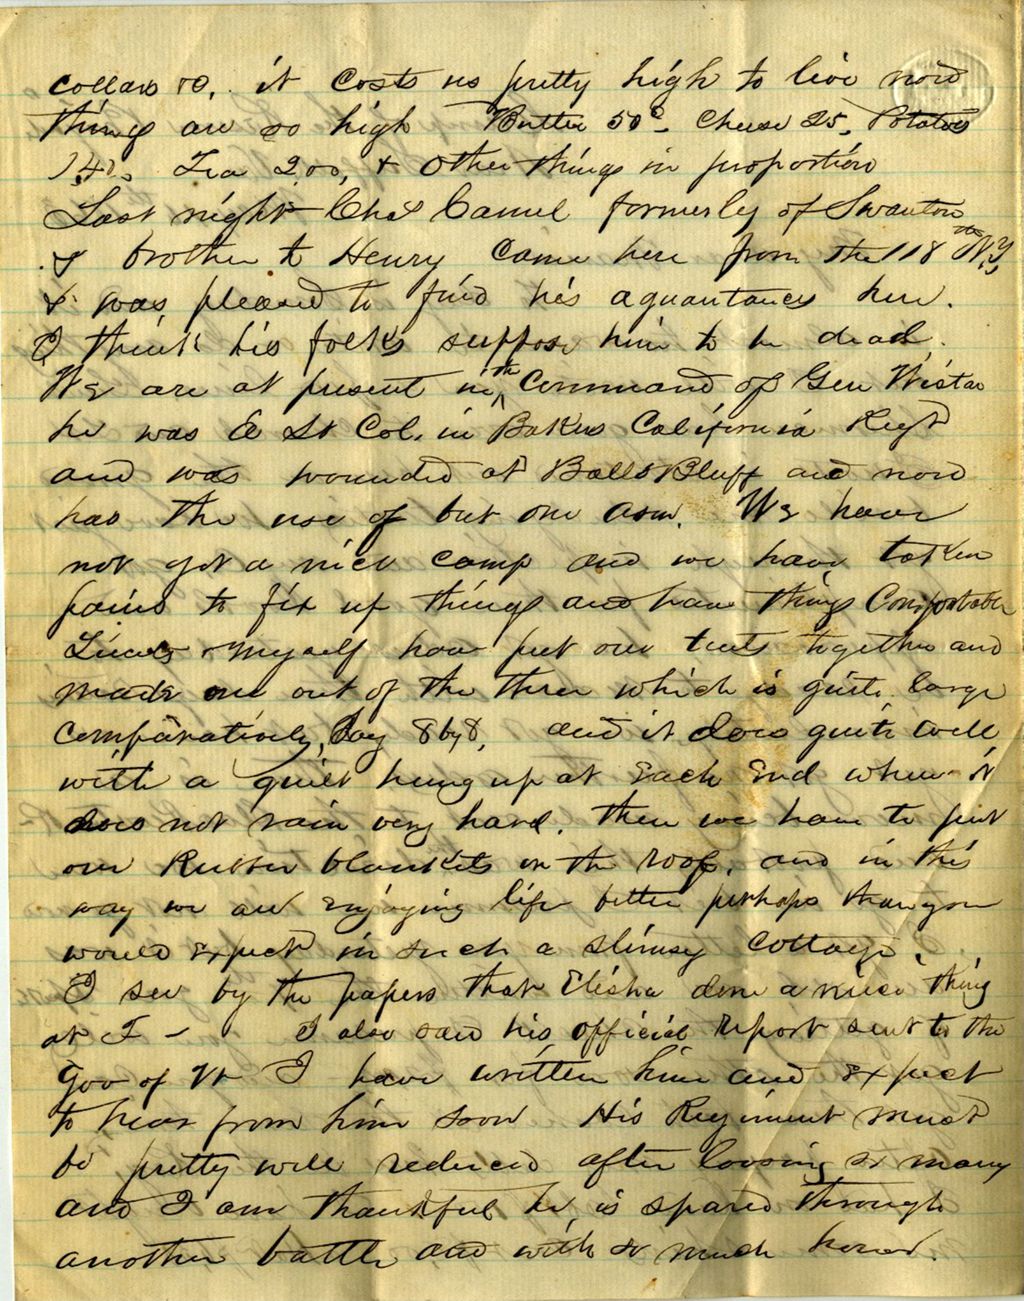 collars &c. it costs us pretty high to live now
things are so high Butter 50c. Cheese 25, Potatoes
1.40. Tea 2.00, & other things in proportion
Last night Chas Camel formerly of Swanton
& brother to Henry came here from the 118th N.Y,
& was pleased to find his aquantances here.
I think his folks suppose him to be dead.
We are at present in the Command of Gen Wistar
he was Lt Col. in Bakers California Regt
and was wounded at Balls Bluff and now
has the use of but one arm. We have
not got a nice camp and we have taken
pains to fix up things and have things Comfortable
& Myself have put our tents together and
made one out of the three which is quite large
comparatively, say 8 by 8, and it does quite well
with a quilt hung up at Each End when it
does not rain very hard. then we have to put
our Rubber blankets on the roof. and in this
way we are Enjoying life better perhaps than you
would expect in such a slimsy Cottage.
I see by the papers that Elisha done a nice thing
at F - I also saw his official report sent to the
Gov of Vt I have written him and expect
to hear from him soon His Regiment must
be pretty well reduced after loosing so many
and I am thankful he is spared through
another battle and with so much honor.